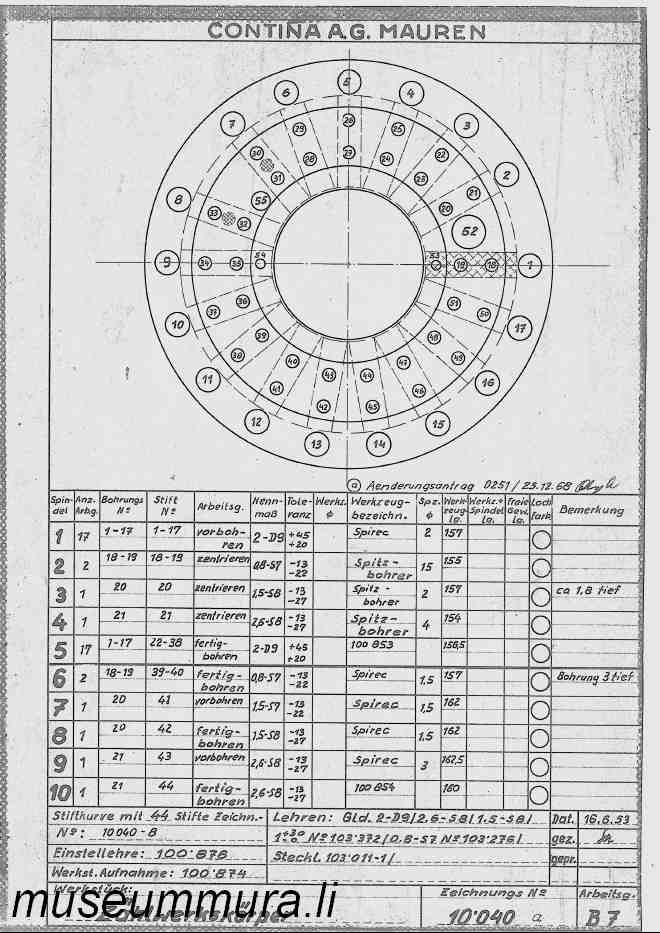 CONTINA A.G. MAUREN
5
6 4
7 3
8 2
9 1
10 17
11 16
12 15
13 14
29 26 25
30 28 27 24 22
31 23
55 21
33 32 20
52
34 35 54 53 19 18
37 36 51 50
38 39 48 49
40 43 44 47
41 42 45 46
a Aenderungsantrag 0251 / 23.12.68
Spindel Anz. Arbg. Bohrungs No Stift No Arbeitsg. Nennmaß Toleranz Werkz. φ Werkzeugbezeichn. Spz. φ Werkzeug Lg. Werkz.+ Spindel Lg. Freie Gew. Lg. Loch fark Bemerkung
1 17 1-17 1-17 vorbohren 2-D9 +45 +20 Spirec 2 157
2 2 18-19 18-19 zentrieren 0,8-S7 -13 -22 Spitzbohrer 15 155
3 1 20 20 zentrieren 1,5-S8 -13 -27 Spitzbohrer 2 157 ca 1,8 tief
4 1 21 21 zentrieren 2,6-S8 -13 -27 Spitzbohrer 4 154
5 17 1-17 22-38 fertigbohren 2-D9 +45 +20 100 853 156,5
6 2 18-19 39-40 fertigbohren 0,8-S7 -13 -22 Spirec 1,5 157 Bohrung 3 tief
7 1 20 41 vorbohren 1,5-S7 -13 -22 Spirec 1,5 162
8 1 20 42 fertigbohren 1,5-S8 -13 -27 Spirec 1,5 162
9 1 21 43 vorbohren 2,6-S8 -13 -27 Spirec 3 162,5
10 1 21 44 fertigbohren 2,6-S8 -13 -27 100 854 160
Stiftkurve mit 44 Stifte Zeichn.- No: 10040-8
Lehren: Gld. 2-D9/2.6-S8/1.5-S8/
No 103'372/0.8-S7 No 103'276/
Steckl. 103'011-1/
Dat. 16.6.53
gez.
gepr.
Einstellehre: 100'878
Werkst. Aufnahme: 100'874
Werkstück: Zählwerkskörper
Zeichnungs No 10'040 a
Arbeitsg. B7
museummura.li